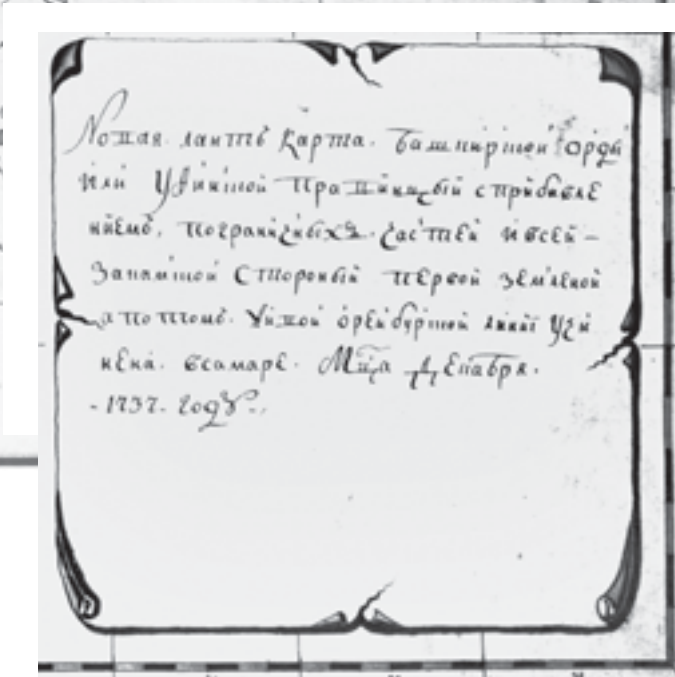 Новая лантъ карта. башкирской орды
или Уѳинской правинцыи с прибавле
ниемъ. пограничныхъ. частей и всей –
закамской стороны первой земленой
а по томъ. Уской оренбурской линии учи
нена. в самаре. Мца декабря.
- 1737. году -.